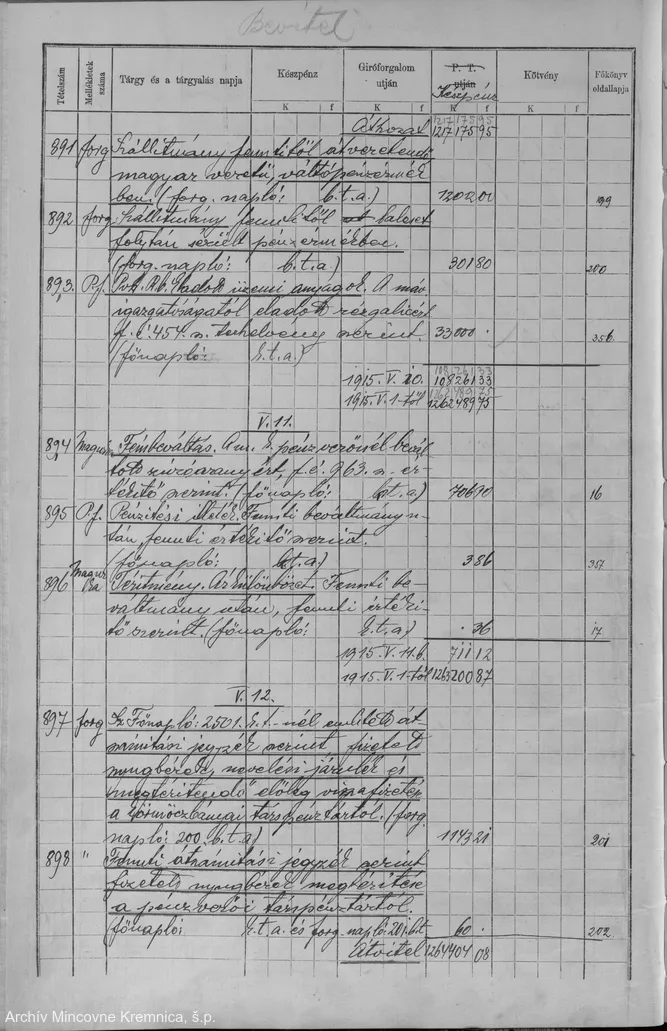 Bevétel
Tételszám
Mellékletek száma
Tárgy és a tárgyalás napja
Készpénz
Giróforgalom utján
P. T. utján
Készpénz
Kötvény
Főkönyv oldallapja
K f K f K f K f
Áthozat 1217175 95
891 forg Szállítmány fenntitől átveretendő
magyar veretű váltópénzérmék
ben. (forg. napló: b.t.a.) 1202 01 199
892 forg. Szállítmány fenntitől baleset
folytán sérült pénzérmékben.
(forg. napló: b.t.a.) 301 80 200
893. P.f. Eladott üzemi anyagok. A máv
igazgatóságától eladott rézgálicért
f. é. 454. sz. szerint. 33000 . 356
(főnapló: b.t.a.)
1915. V. 10. 108261 33
1915. V. 1-től 1262489 75
V. 11.
894 Fémbeváltás. A m. k. pénzverőnél bevál
tott színarany ért, f. é. 963. sz. ér-
tesítő szerint. (főnapló: b.t.a.) 706 90 16
895 P.f. Pénzítési illeték. Fennti beváltmány u-
tán, fennti értesítő szerint.
(főnapló: b.t.a.) 3 86 357
896 Térítmény. Árkülönbözet. Fennti be-
váltmány után, fennti értesí-
tő szerint. (főnapló: b.t.a.) . 36 17
1915. V. 11. 711 12
1915. V. 1-től 1263200 87
V. 12.
897 forg Sz. Főnapló: 2501. k.t.-nél említett át-
számítási jegyzék szerint fizetett
nyugbérek, nevelési járulék és
megtérítendő előleg visszafizetés
a körmöczbányai társpénztártól. (forg.
napló: 200. b.t.a) 1143 21 201
898 " Fennti átszámítási jegyzék szerint
fizetett nyugbérek megtérítése
a pénzverői társpénztártól.
(főnapló: k.t.a. és forg. napló: 201. b.t. 60 . 202
Átvitel 1264404 08
Archív Mincovne Kremnica, š.p.